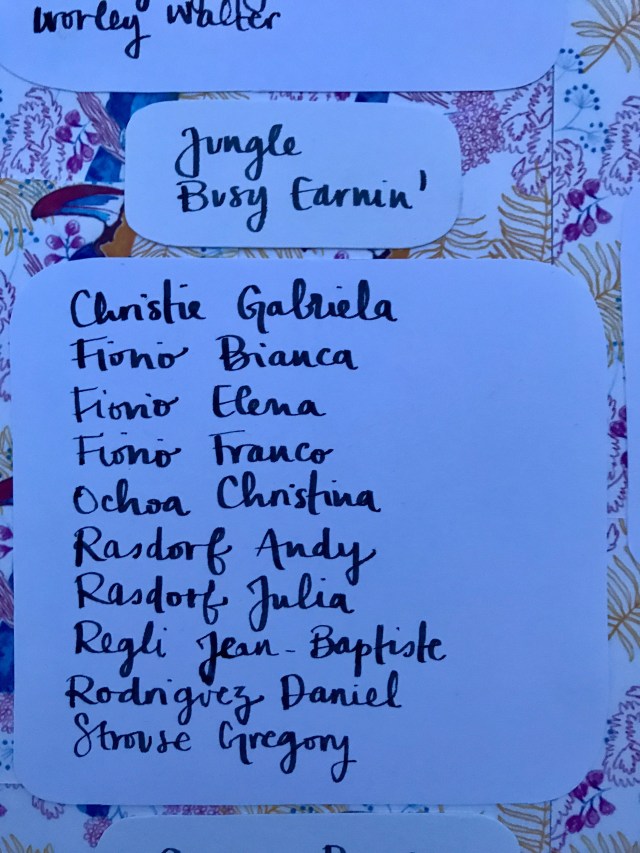 Worley Walter
Jungle
Busy Earnin'
Christie Gabriela
Fiorio Bianca
Fiorio Elena
Fiorio Franco
Ochoa Christina
Rasdorf Andy
Rasdorf Julia
Regli Jean-Baptiste
Rodriguez Daniel
Strouse Gregory